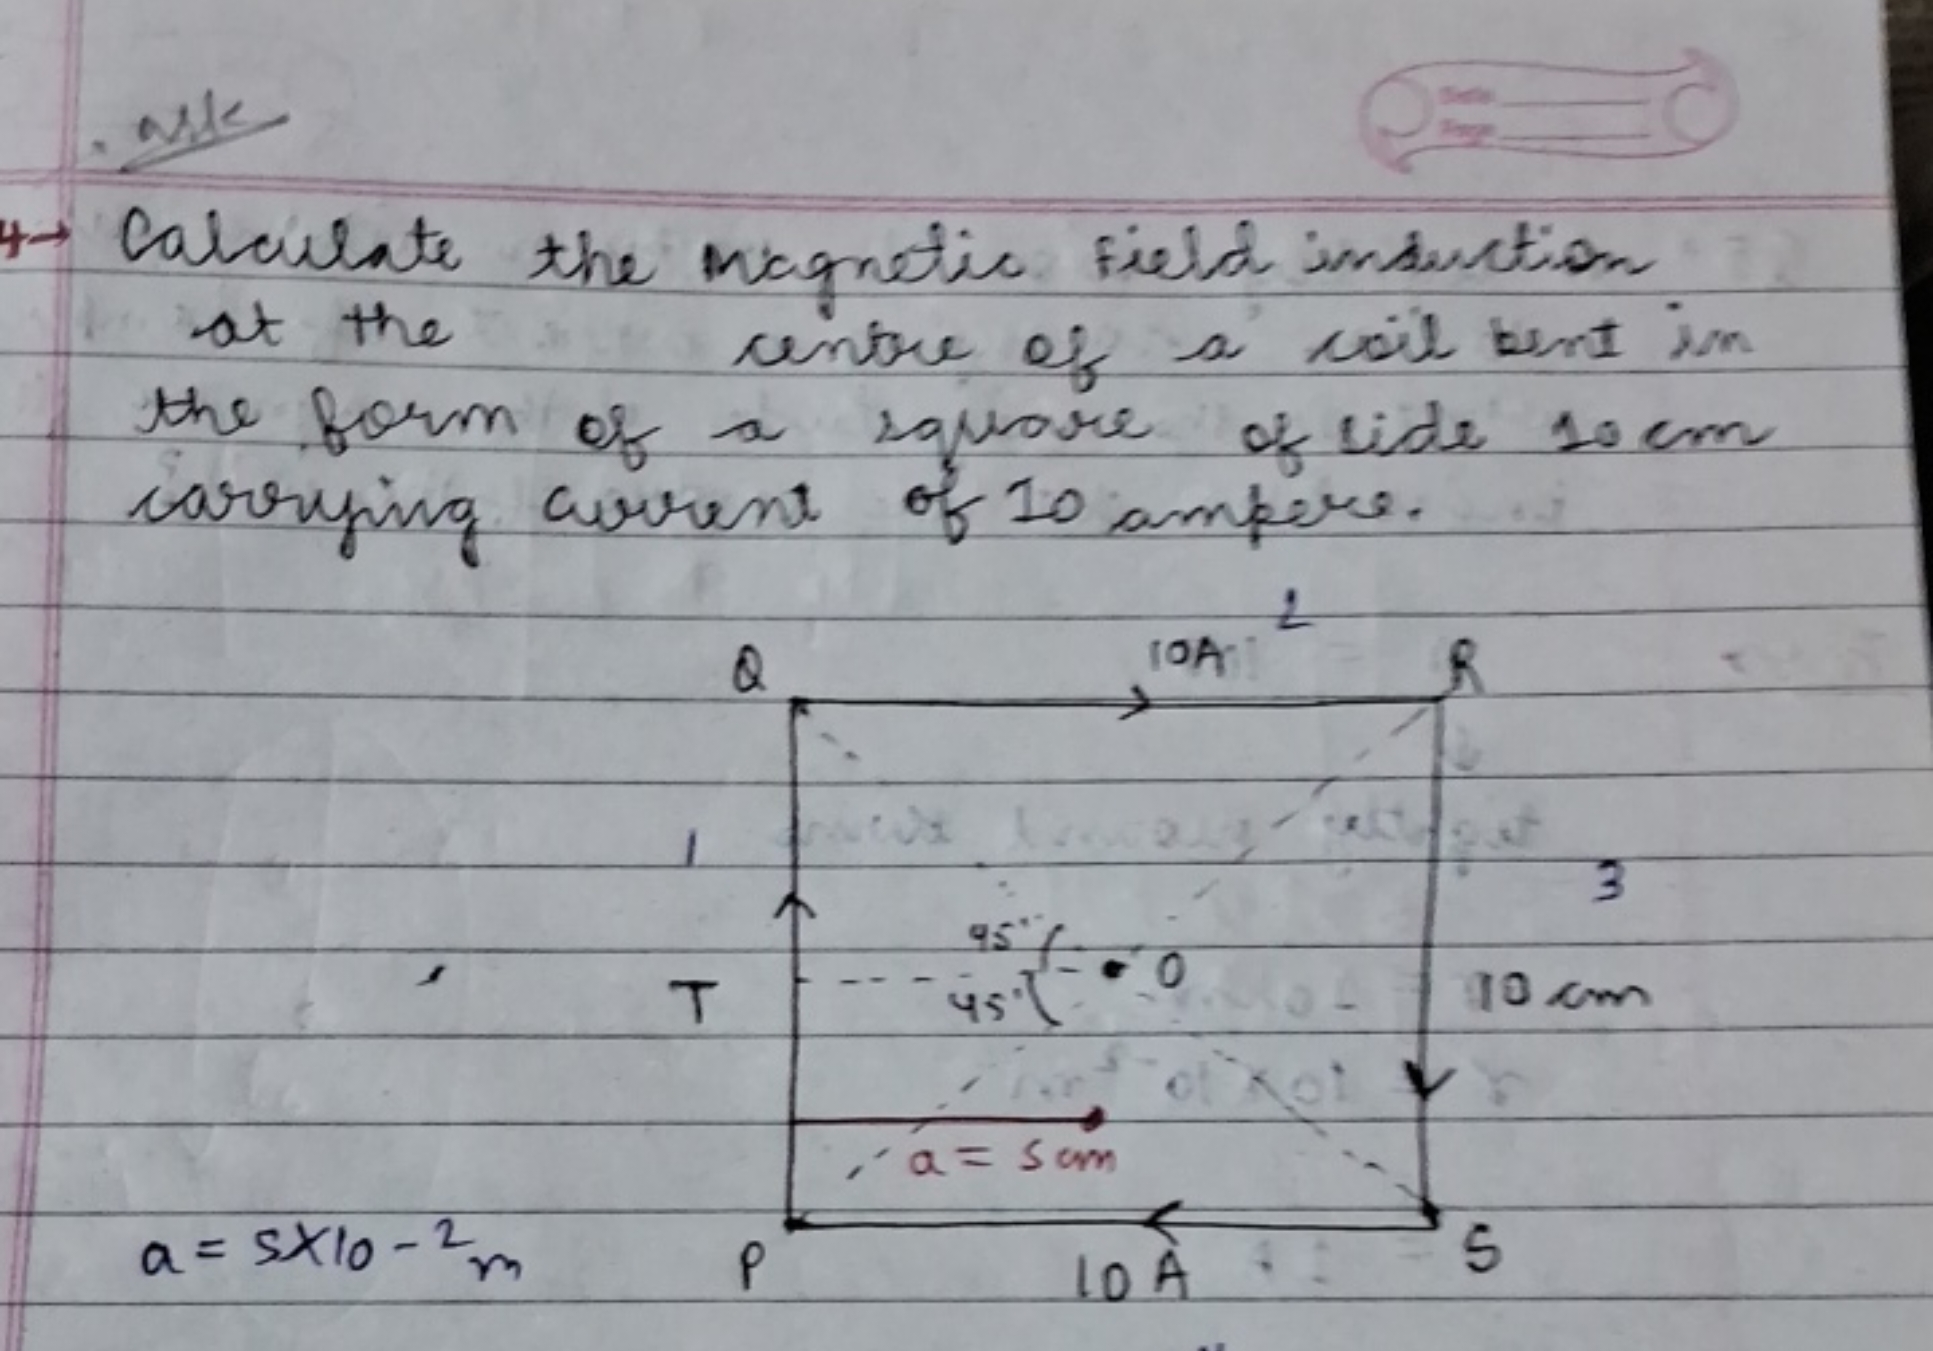 ask
4→ Calculate the magnetic field induction
at the centre of a coil bent in
the form of a square of side 10 cm
carrying current of 10 ampere.
2
Q 10A R
1
3
45°
T 45° O 10 cm
a = 5 cm
a = 5X10-² m
P 10 A S